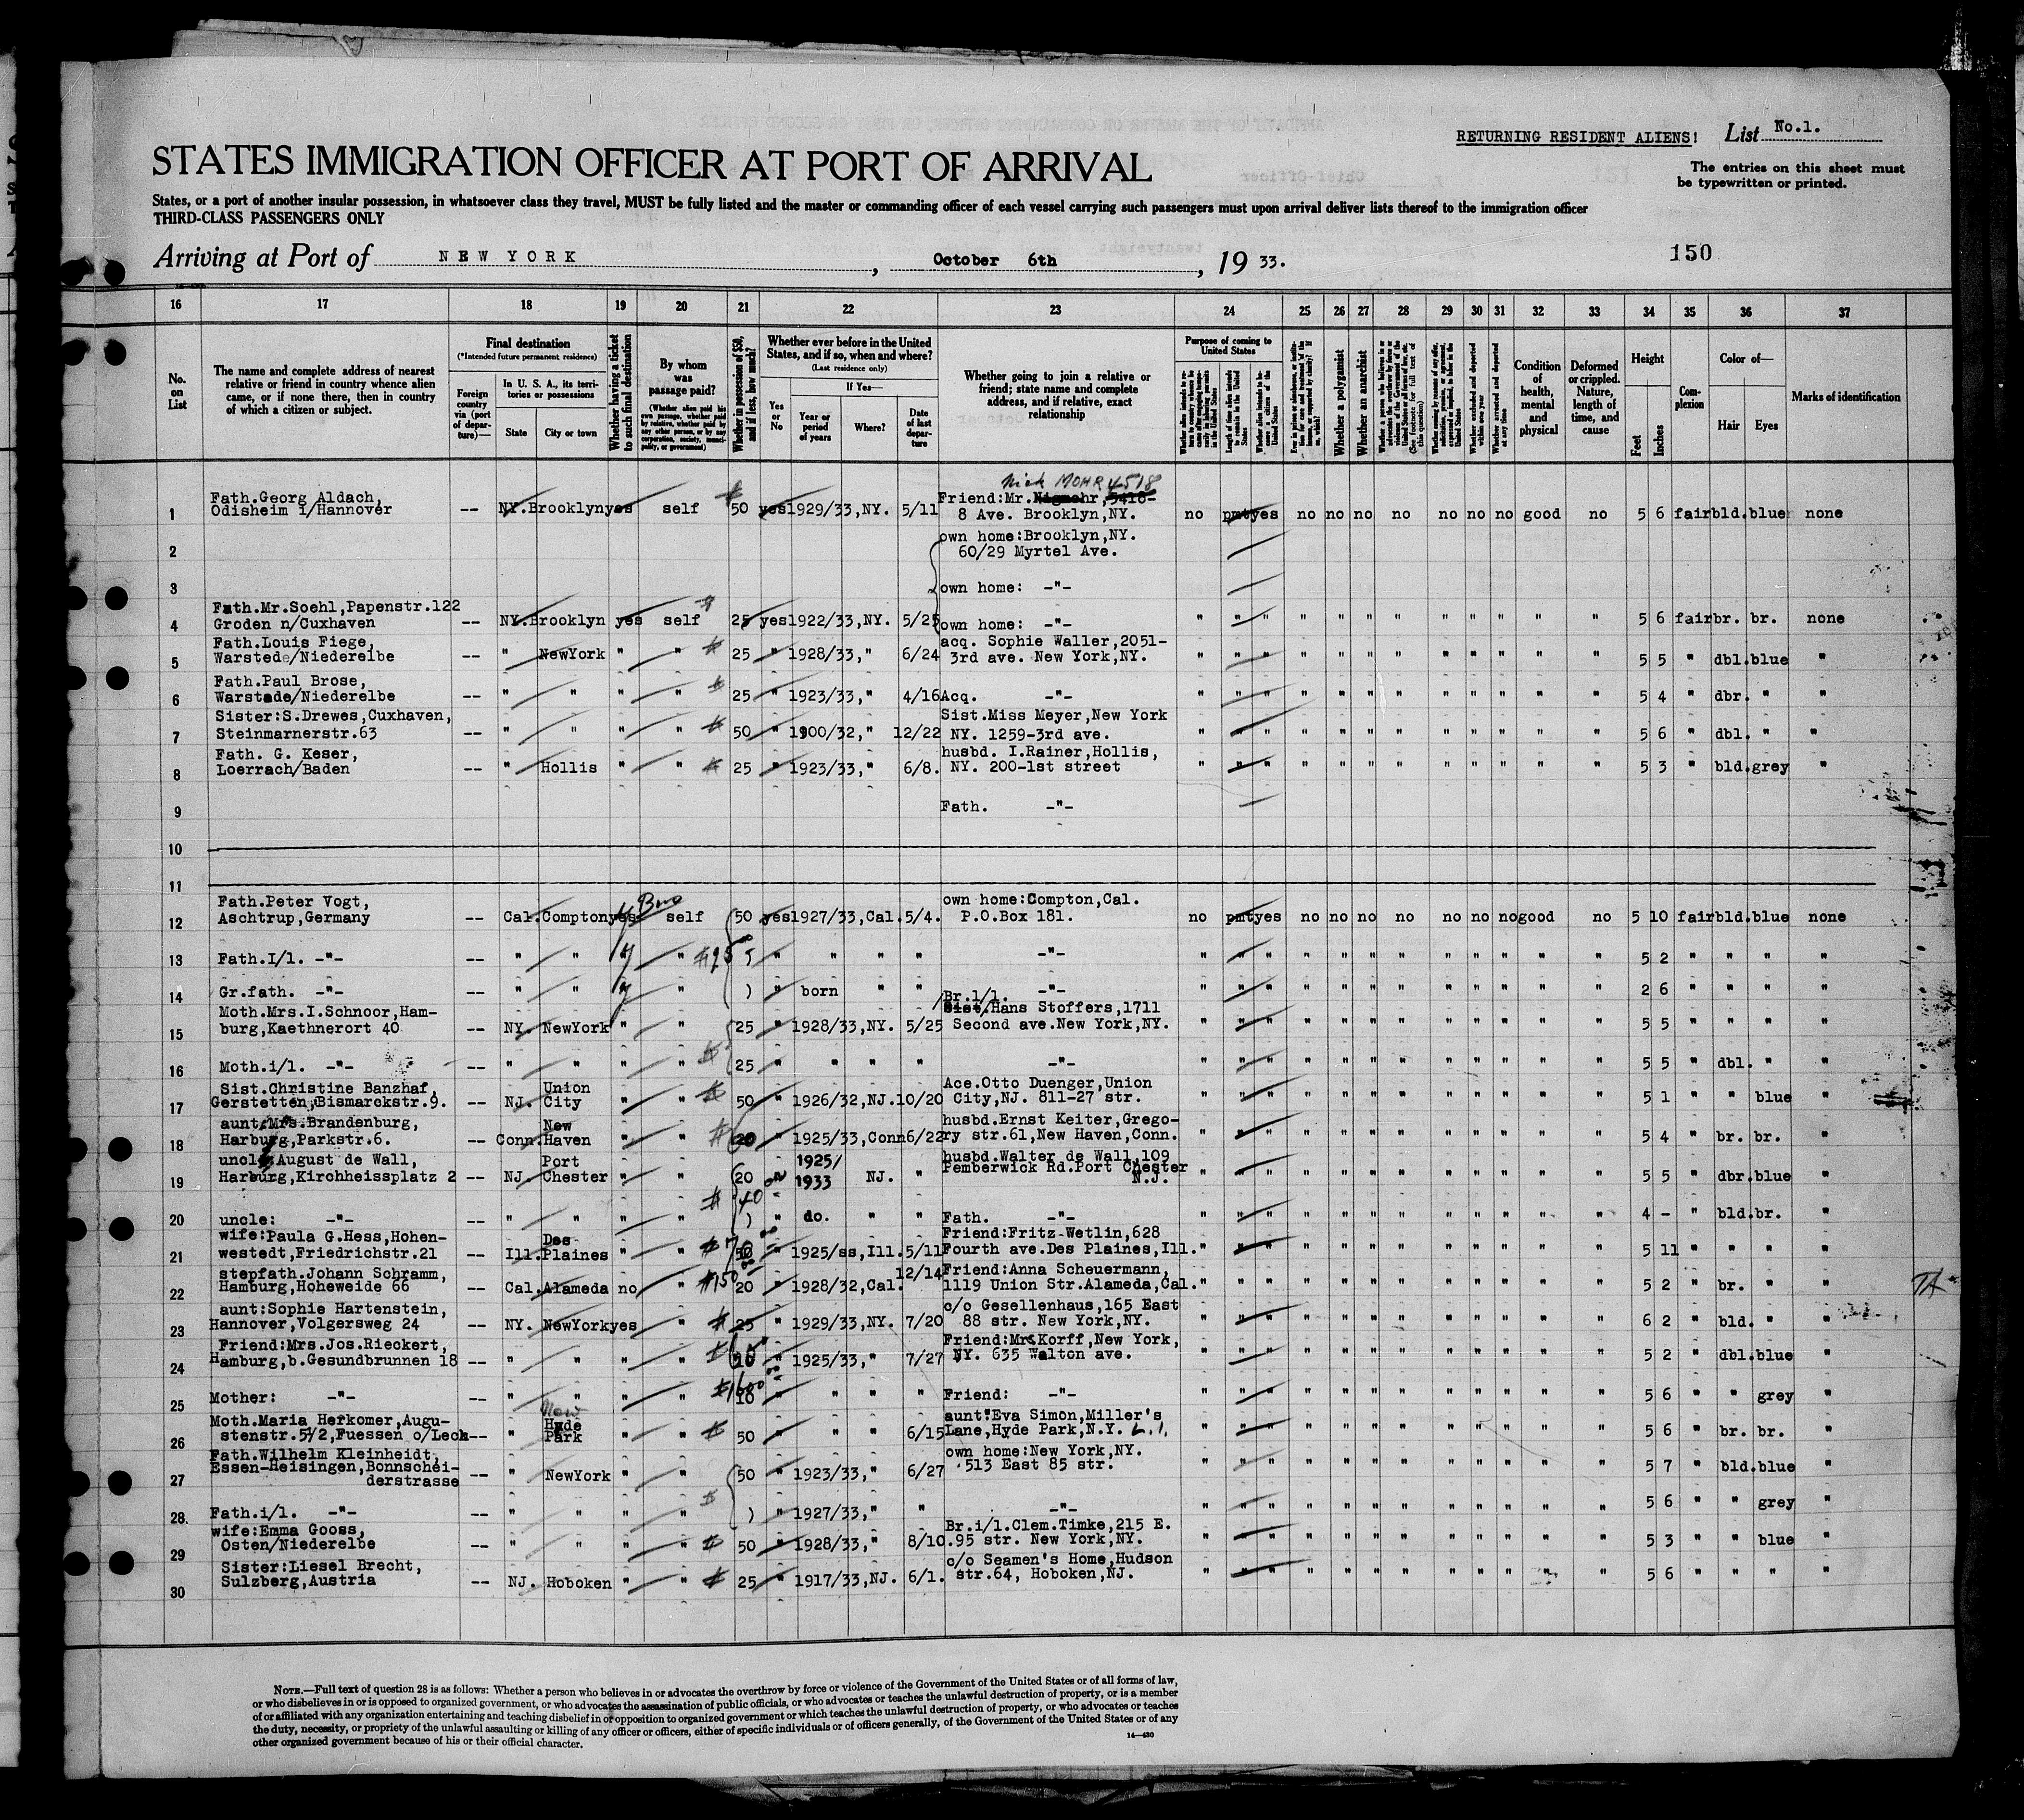 RETURNING RESIDENT ALIENS! List No.1.
STATES IMMIGRATION OFFICER AT PORT OF ARRIVAL
The entries on this sheet must
be typewritten or printed.
States, or a port of another insular possession, in whatsoever class they travel, MUST be fully listed and the master or commanding officer of each vessel carrying such passengers must upon arrival deliver lists thereof to the immigration officer
THIRD-CLASS PASSENGERS ONLY
Arriving at Port of NEW YORK, October 6th, 19 33.
150
16 17 18 19 20 21 22 23 24 25 26 27 28 29 30 31 32 33 34 35 36 37
No. on List
The name and complete address of nearest relative or friend in country whence alien came, or if none there, then in country of which a citizen or subject.
Final destination
(*Intended future permanent residence)
Foreign country via (port of departure)—
In U. S. A., its territories or possessions
State City or town
Whether having a ticket to such final destination
By whom was passage paid?
(Whether alien paid his own passage, whether paid by relative, whether paid by any other person, or by any corporation, society, municipality, or government)
Whether in possession of $50, and if less, how much?
Whether ever before in the United States, and if so, when and where?
(Last residence only)
If Yes—
Yes or No
Year or period of years
Where?
Date of last departure
Whether going to join a relative or friend; state name and complete address, and if relative, exact relationship
Purpose of coming to United States
Length of time alien intends to remain in the United States
Whether alien intends to become a citizen of the United States
Whether a polygamist
Whether an anarchist
Whether arrested and deported at any time
Condition of health, mental and physical
Deformed or crippled. Nature, length of time, and cause
Height
Feet Inches
Complexion
Color of—
Hair Eyes
Marks of identification
Nick MOHR 4518
1 Fath.Georg Aldach, Odisheim i/Hannover -- NY. Brooklyn yes self 50 yes 1929/33,NY. 5/11 Friend:Mr. 8 Ave. Brooklyn,NY. no pmt yes no no no no no no no good no 5 6 fair bld. blue none
2 own home:Brooklyn,NY. 60/29 Myrtel Ave.
3 own home: -"-
4 Fath.Mr.Soehl,Papenstr.122 Groden n/Cuxhaven -- NY. Brooklyn yes self 25 yes 1922/33,NY. 5/25 own home: -"- " " " " " " " " " " " " " 5 6 fair br. br. none
5 Fath.Louis Fiege, Warstede/Niederelbe -- " NewYork " " 25 " 1928/33," 6/24 acq. Sophie Waller,2051- 3rd ave. New York,NY. " " " " " " " " " " " " " 5 5 " dbl. blue "
6 Fath.Paul Brose, Warstade/Niederelbe -- " " " " 25 " 1923/33," 4/16 Acq. -"- " " " " " " " " " " " " " 5 4 " dbr. " "
7 Sister:S.Drewes,Cuxhaven, Steinmarnerstr.63 -- " " " " 50 " 1900/32," 12/22 Sist.Miss Meyer,New York NY. 1259-3rd ave. " " " " " " " " " " " " " 5 6 " dbl. " "
8 Fath. G. Keser, Loerrach/Baden -- " Hollis " " 25 " 1923/33," 6/8. husbd. I.Rainer,Hollis, NY. 200-1st street " " " " " " " " " " " " " 5 3 " bld. grey "
9 Fath. -"-
10
11
12 Fath.Peter Vogt, Aschtrup,Germany -- Cal. Compton yes self 50 yes 1927/33,Cal. 5/4. own home:Compton,Cal. P.O.Box 181. no pmt yes no no no no no no no good no 5 10 fair bld. blue none
13 Fath.I/l. -"- -- " " " " " " " " -"- " " " " " " " " " " " " " 5 2 " " " "
14 Gr.fath. -"- -- " " " " ) " born " " -"- " " " " " " " " " " " " " 2 6 " " " "
15 Moth.Mrs.I.Schnoor,Hamburg,Kaethnerort 40 -- NY. NewYork " " 25 " 1928/33,NY. 5/25 Br.i/l. Hans Stoffers,1711 Second ave.New York,NY. " " " " " " " " " " " " " 5 5 " " " "
16 Moth.i/l. -"- -- " " " " 25 " " " " -"- " " " " " " " " " " " " " 5 5 " dbl. " "
17 Sist.Christine Banzhaf, Gerstetten,Bismarckstr.9. -- NJ. Union City " " 50 " 1926/32,NJ. 10/20 Acc.Otto Duenger,Union City,NJ. 811-27 str. " " " " " " " " " " " " " 5 1 " " blue "
18 aunt:Mrs.Brandenburg, Harburg,Parkstr.6. -- Conn. New Haven " " 20 " 1925/33,Conn 6/22 husbd.Ernst Keiter,Gregory str.61,New Haven,Conn. " " " " " " " " " " " " " 5 4 " br. br. "
19 uncle:August de Wall, Harburg,Kirchheissplatz 2 -- NJ. Port Chester " " 20 1925/1933 NJ. " husbd.Walter de Wall,109 Pemberwick Rd.Port Chester N.J. " " " " " " " " " " " " " 5 5 " dbr. blue "
20 uncle: -"- -- " " " " $ 40 ) " do. " " Fath. -"- " " " " " " " " " " " " " 4 - " bld. br. "
21 wife:Paula G.Hess,Hohenwestedt,Friedrichstr.21 -- Ill. Des Plaines " " 50 " 1925/ss,Ill. 5/11 Friend:Fritz Wetlin,628 Fourth ave.Des Plaines,Ill. " " " " " " " " " " " " " 5 11 " " " "
22 stepfath.Johann Schramm, Hamburg,Hoheweide 66 -- Cal. Alameda no " $150 20 " 1928/32,Cal. 12/14 Friend:Anna Scheuermann, 1119 Union Str.Alameda,Cal. " " " " " " " " " " " " " 5 2 " br. " "
23 aunt:Sophie Hartenstein, Hannover,Volgersweg 24 -- NY. NewYork yes " 25 " 1929/33,NY. 7/20 c/o Gesellenhaus,165 East 88 str. New York,NY. " " " " " " " " " " " " " 6 2 " bld. " "
24 Friend:Mrs.Jos.Rieckert, Hamburg,b.Gesundbrunnen 18 -- " " " " 20 " 1925/33," 7/27 Friend:Mrs Korff,New York, NY. 635 Walton ave. " " " " " " " " " " " " " 5 2 " dbl. blue "
25 Mother: -"- -- " " " " 18 " " " " Friend: -"- " " " " " " " " " " " " " 5 6 " " grey "
26 Moth.Maria Hefkomer,Augustenstr.5½2,Fuessen o/Lech -- " New Hyde Park " " 50 " " " 6/15 aunt:Eva Simon,Miller's Lane,Hyde Park,N.Y. L.I. " " " " " " " " " " " " " 5 6 " br. br. "
27 Fath.Wilhelm Kleinheidt, Essen-Heisingen,Bonnscheiderstrasse -- " NewYork " " 50 " 1923/33," 6/27 own home:New York,NY. 513 East 85 str. " " " " " " " " " " " " " 5 7 " bld. blue "
28 Fath.i/l. -"- -- " " " " ) " 1927/33," " -"- " " " " " " " " " " " " " 5 6 " " grey "
29 wife:Emma Gooss, Osten/Niederelbe -- " " " " 50 " 1928/33," 8/10. Br.i/l.Clem.Timke,215 E. 95 str. New York,NY. " " " " " " " " " " " " " 5 3 " " blue "
30 Sister:Liesel Brecht, Sulzberg,Austria -- NJ. Hoboken " " 25 " 1917/33,NJ. 6/1. c/o Seamen's Home,Hudson str.64, Hoboken,NJ. " " " " " " " " " " " " " 5 6 " " " "
NOTE.—Full text of question 28 is as follows: Whether a person who believes in or advocates the overthrow by force or violence of the Government of the United States or of all forms of law,
or who disbelieves in or is opposed to organized government, or who advocates the assassination of public officials, or who advocates or teaches the unlawful destruction of property, or is a member
of or affiliated with any organization entertaining and teaching disbelief in or opposition to organized government or which teaches the unlawful destruction of property, or who advocates or teaches
the duty, necessity, or propriety of the unlawful assaulting or killing of any officer or officers, either of specific individuals or of officers generally, of the Government of the United States or of any
other organized government because of his or their official character.
14—430